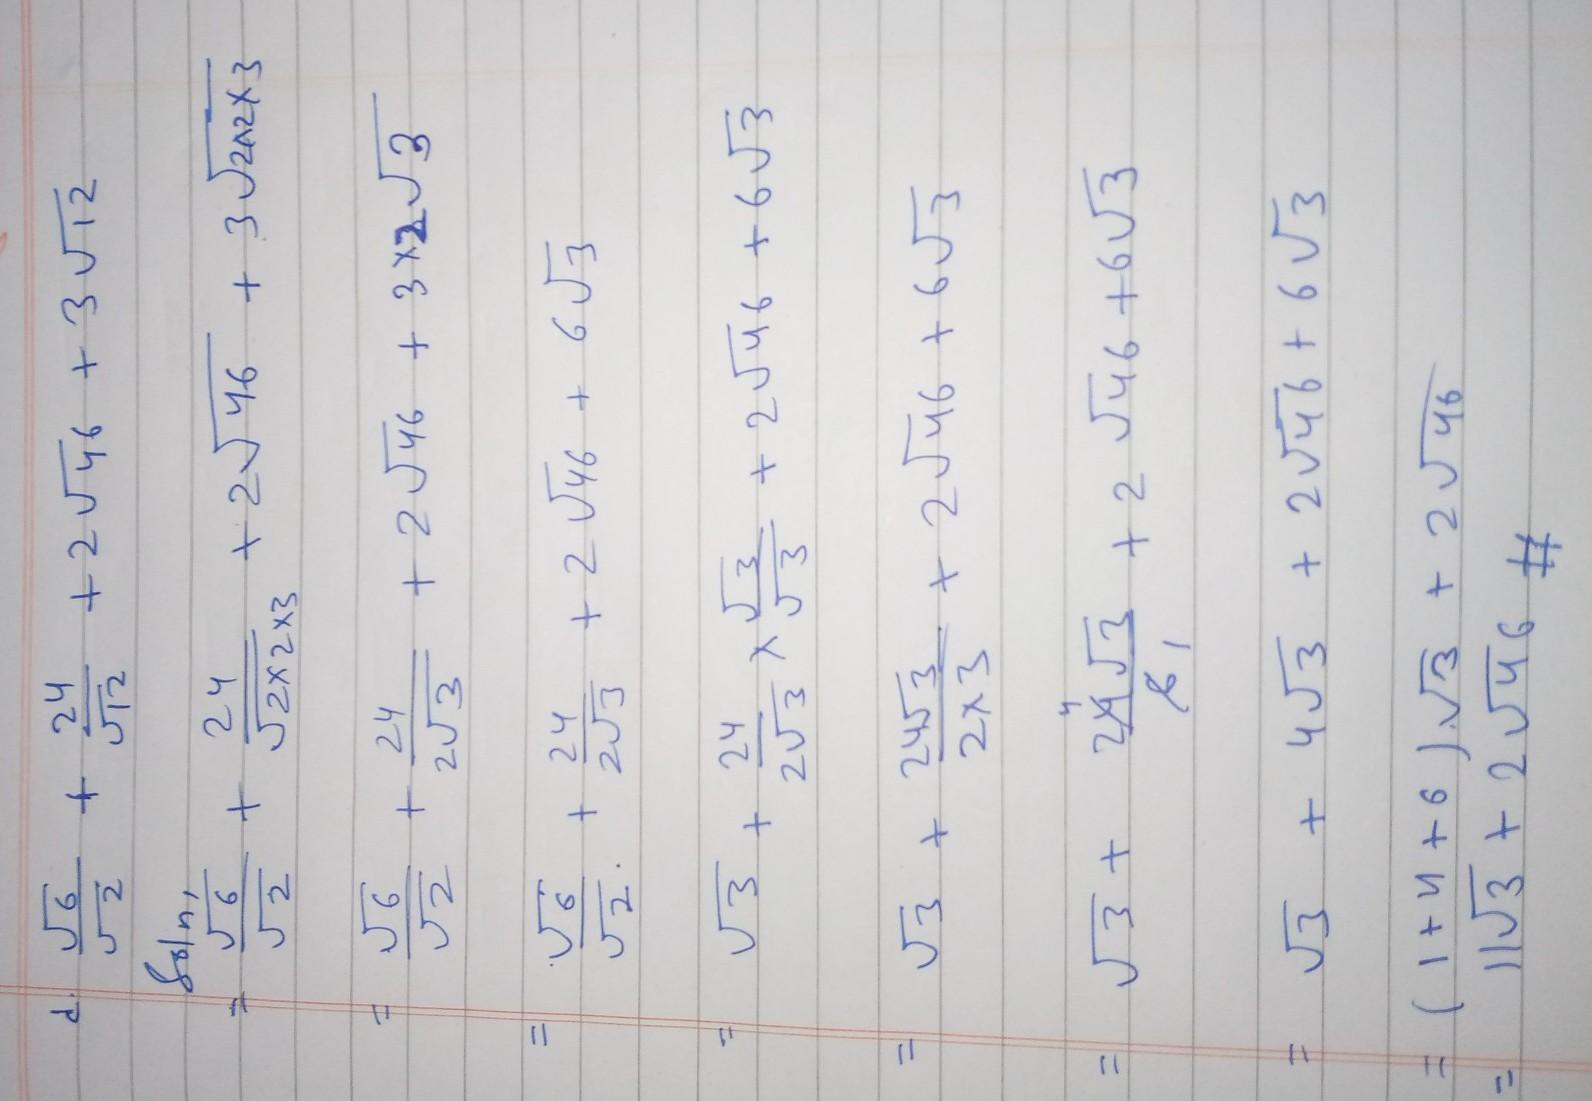 d. √6/√2 + 24/√12 + 2√46 + 3√12
Soln,
= √6/√2 + 24/√2×2×3 + 2√46 + 3√2×2×3
= √6/√2 + 24/2√3 + 2√46 + 3×2√3
= √6/√2 + 24/2√3 + 2√46 + 6√3
= √3 + 24/2√3 × √3/√3 + 2√46 + 6√3
= √3 + 24√3/2×3 + 2√46 + 6√3
= √3 + 4 24√3/6 1 + 2√46 + 6√3
= √3 + 4√3 + 2√46 + 6√3
= (1+4+6)√3 + 2√46
= 11√3 + 2√46 #